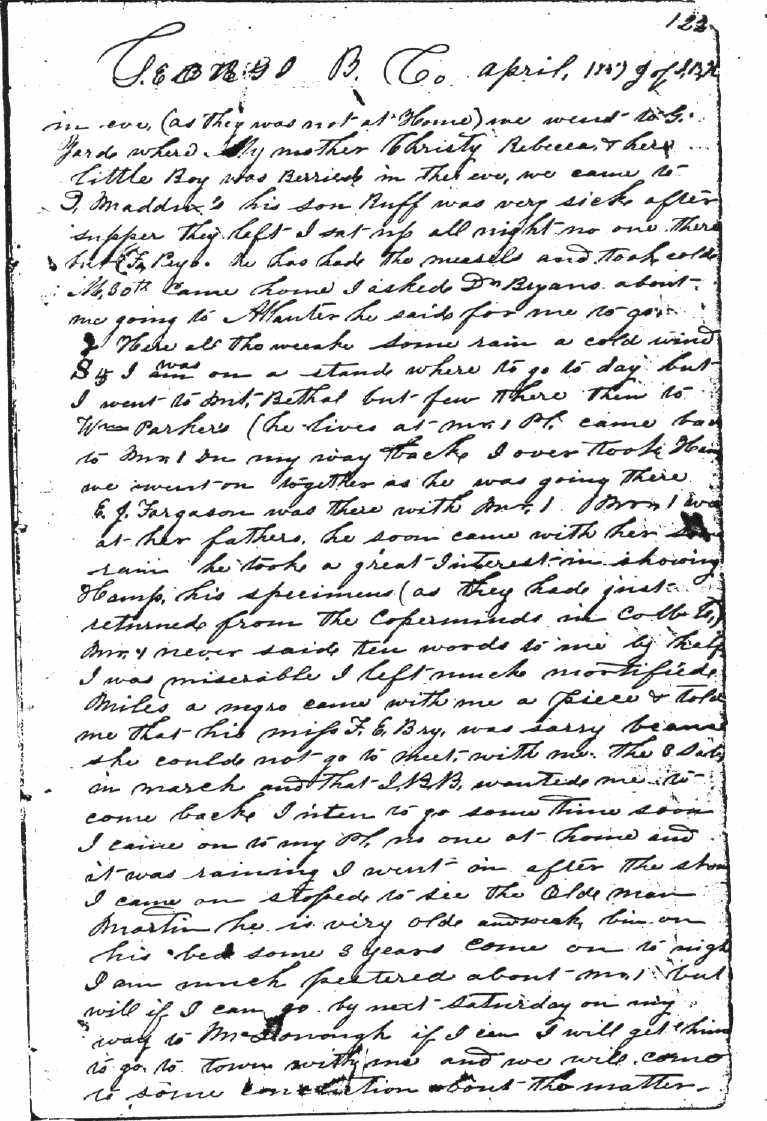 122
B. Co april, 1857 J of J.B.H
in eve, (as they was not at Home) we went to G.
Yard where My mother Christy Rebecca & here
little Boy was Berried in the eve, we came to
D. Maddux's his son Ruff was very sick after
supper they left I sat up all night no one there
but he has had the meesels and took cold
M, 30th Came home I asked Dr Bryans about
me going to Atlanter he said for me to go.
Here all the weeake some rain a cold wind
S 4 I was am on a stand where to go to day but
I went to Mt, Bethal but few there then to
Wm Parkers (he lives at mr. 1 Pl. came back
to Mr. 1 on my way back I over took Him
we went on together as he was going there
E. J. Fargason was there with Mr, 1 Mrs, 1 was
at her fathers, he soon came with her
rain he took a great Interest in showing
Hamp, his specimens (as they had just
returned from the Coperminds in Cobb Co,)
Mr. 1 never said ten words to me by half
I was miserable I left much mortifide
Miles a negro came with me a piece & told
me that his miss F. E. Bry. was sarry becaus
she could not go to meet, with me. the 3 Sab,
in march and that J.B.B. wanted me to
come back I inten to go some time soon
I came on to my Pl, no one at home and
it was raining I went in after the
I came on stoped to see the Olde man
Martin he is viry olde and week, bin on
his bed some 3 years come on to nigh
I am much peetered about Mr. 1 but
will if I can go by next Saturday on my
way to McDonough if I can I will get him
to go to town with me and we will come
to some conclution about the matter—